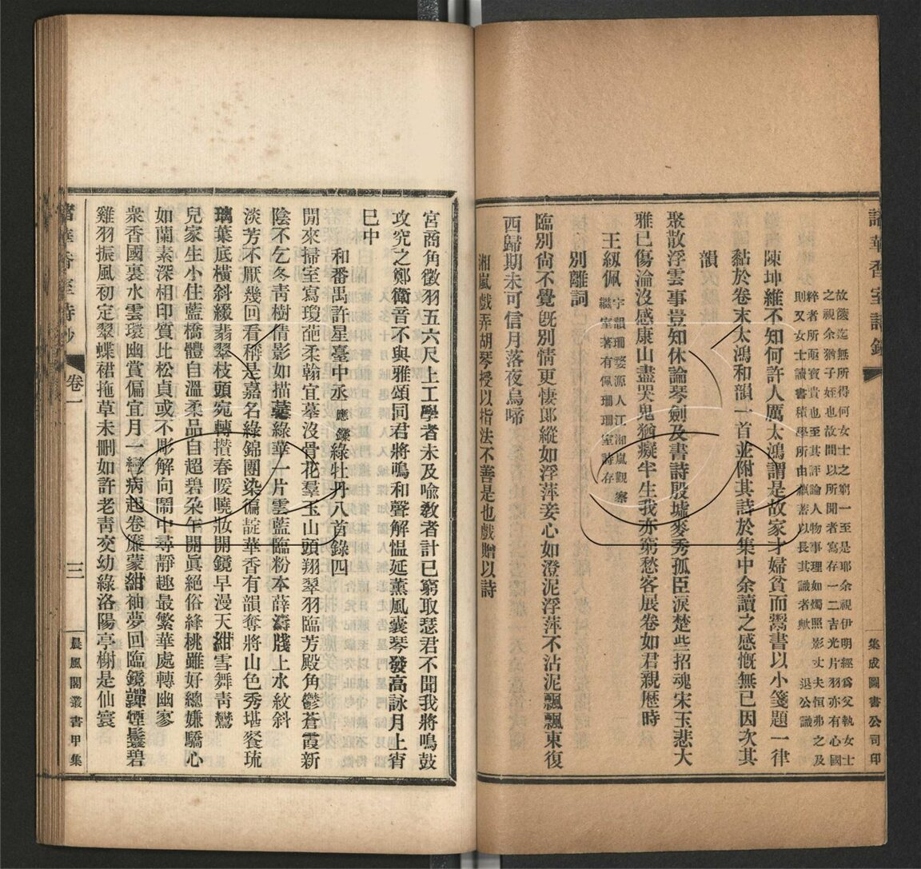 故簏迄無所得何女士之窮一至是耶余視伊明經爲父執女士
之視余猶子姪也故間以所聞者寫存一二吉光片羽亦有心國
粹者所亟寶貴也至其評論人物事理如燭照影丈夫恒弗之及
則又女士讀書積學所由蘊蓄以長其識者歟　退公識
陳坤維不知何許人厲太鴻謂是故家才婦貧而鬻書以小箋題一律
黏於卷末太鴻和韻一首並附其詩於集中余讀之感慨無已因次其
韻
聚散浮雲事豈知休論琴劍及書詩殷墟麥秀孤臣淚楚些招魂宋玉悲大
雅已傷淪沒感康山盡哭鬼猶癡半生我亦窮愁客展卷如君親歷時
王紉佩
字韻珊婺源人江湘嵐觀察
繼室著有佩珊珊室詩存
別離詞
臨別尙不覺旣別情更悽郎縱如浮萍妾心如澄泥浮萍不沾泥飄飄東復
西歸期未可信月落夜烏啼
湘嵐戲弄胡琴授以指法不善是也戲贈以詩
集成圖書公司印
宮商角徵羽五六尺上工學者未及喩敎者計已窮取瑟君不聞我將鳴鼓
攻究之鄭衛音不與雅頌同君將鳴和聲解慍延薰風囊琴發高詠月上宵
巳中
和番禺許星臺中丞應鑅綠牡丹八首錄四
閒來掃室寫瓊葩柔翰宜摹沒骨花羣玉山頭翔翠羽臨芳殿角鬱蒼霞新
陰不乞冬靑樹倩影如描萼綠華一片雲藍臨粉本薛濤牋上水紋斜
淡芳不厭幾回看稱是嘉名綠錦團染徧靛華香有韻奪將山色秀堪餐琉
璃葉底橫斜緩翡翠枝頭宛轉攢春暖曉妝開鏡早漫天紺雪舞靑鸞
兒家生小住藍橋體自溫柔品自超碧朵乍開眞絕俗絳桃雖好總嫌驕心
如蘭素深相印質比松貞或不彫解向鬧中尋靜趣最繁華處轉幽寥
衆香國裏水雲環幽賞偏宜月一彎病起卷簾蒙紺袖夢回臨鏡嚲煙鬟碧
雞羽振風初定翠蝶裙拖草未刪如許老靑交幼綠洛陽亭榭是仙寰
卷一
三
晨風閣叢書甲集